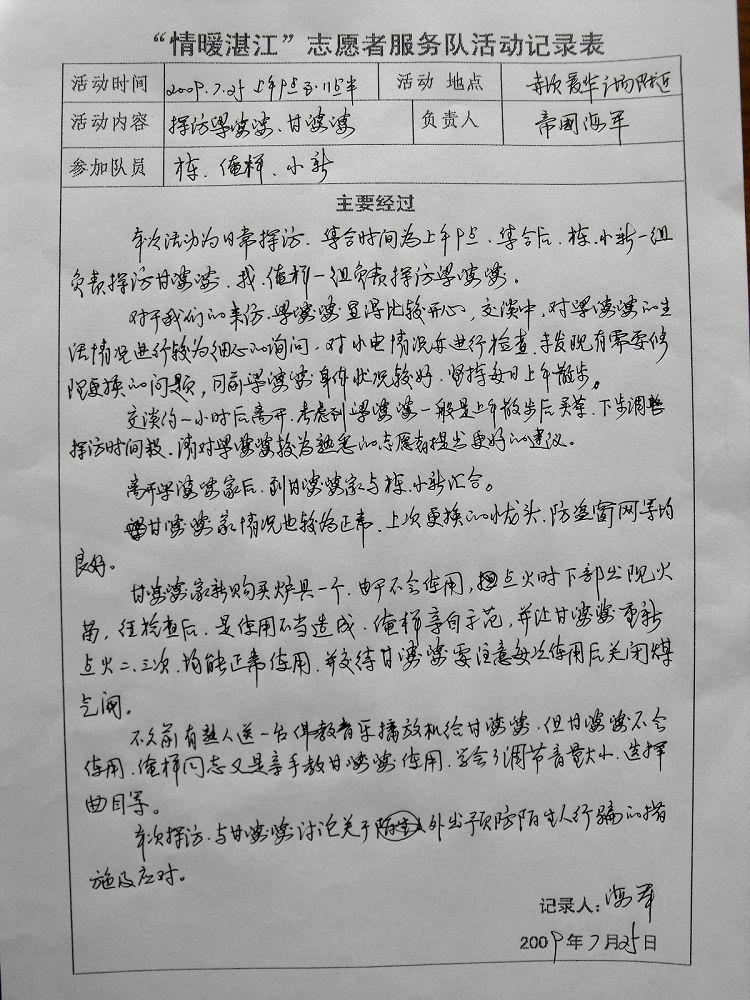 “情暖湛江”志愿者服务队活动记录表
活动时间 2009.7.25 上午9点至11点半 活动 地点 赤坎爱华广场附近
活动内容 探访梁婆婆、甘婆婆 负责人 帝国海军
参加队员 栋、俺样、小新
主要经过
本次活动为日常探访、集合时间为上午9点、集合后、栋、小新一组
负责探访甘婆婆、我、俺样一组负责探访梁婆婆。
对于我们的来访、梁婆婆显得比较开心、交谈中、对梁婆婆的生
活情况进行较为细心的询问、对水电情况亦进行检查、未发现有需要修
理更换的问题，目前梁婆婆身体状况较好、坚持每日上午散步。
交谈约一小时后离开、考虑到梁婆婆一般是上午散步后买菜、下步调整
探访时间段、请对梁婆婆较为熟悉的志愿者提出更好的建议。
离开梁婆婆家后、到甘婆婆家与栋、小新汇合。
甘婆婆家情况也较为正常、上次更换的水龙头、防盗窗网等均
良好。
甘婆婆家新购买炉具一个、由于不会使用，点火时下部出现火
苗，经检查后、是使用不当造成、俺样亲自示范，并让甘婆婆重新
点火二、三次、均能正常使用、并交待甘婆婆要注意每次使用后关闭煤
气阀。
不久前有熟人送一台佛教音乐播放机给甘婆婆、但甘婆婆不会
使用、俺样同志又是亲手教甘婆婆使用、学会了调节音量大小、选择
曲目等。
本次探访、与甘婆婆讨论关于外出预防陌生人行骗的措
施及应对。
记录人：海军
2009年7月25日